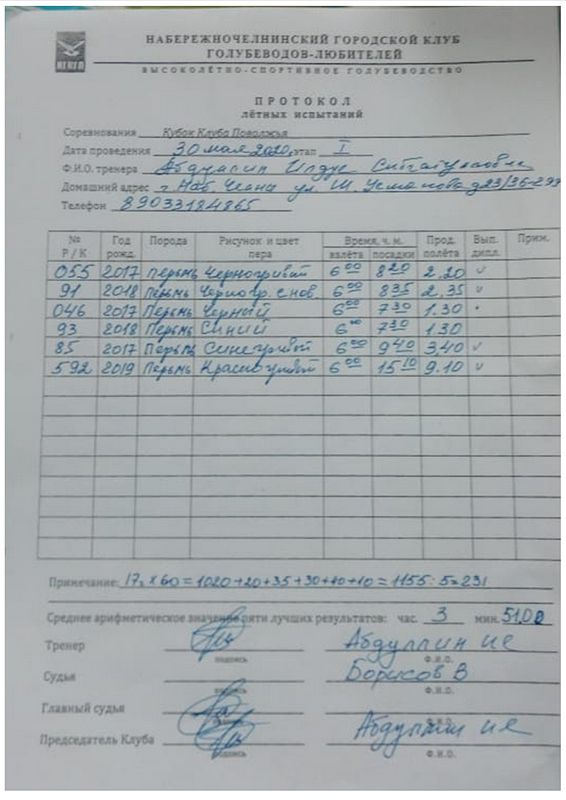 НАБЕРЕЖНОЧЕЛНИНСКИЙ ГОРОДСКОЙ КЛУБ
ГОЛУБЕВОДОВ-ЛЮБИТЕЛЕЙ
ВЫСОКОЛЁТНО-СПОРТИВНОЕ ГОЛУБЕВОДСТВО
ПРОТОКОЛ
лётных испытаний
Соревнования Кубок Клуба Поволжья
Дата проведения 30 мая 2020, этап I
Ф.И.О. тренера Абдуллин Илдус
Домашний адрес г. Наб. Челны ул. Ш. Усманова д 23/36-293
Телефон 89033184865
№ Р / К Год рожд. Порода Рисунок и цвет пера Время, ч. м. взлёта посадки Прод. полёта Вып. дипл. Прим.
055 2017 Пермь Черногривый 6 00 8 20 2.20 v
91 2018 Пермь Черногр. с нов. 6 00 8 35 2.35 v
046 2017 Пермь Черный 6 00 7 30 1.30
93 2018 Пермь Синий 6 00 7 30 1.30
85 2017 Пермь Синегривый 6 00 9 40 3.40 v
592 2019 Пермь Красногривый 6 00 15 10 9.10 v
Примечание: 17ч × 60 = 1020+20+35+30+40+10 = 1155 : 5 = 231
Среднее арифметическое значение пяти лучших результатов: час. 3 мин. 51,00
Тренер Абдуллин ИС
подпись Ф.И.О.
Судья Борисов В
подпись Ф.И.О.
Главный судья
Ф.И.О.
Председатель Клуба Абдуллин ИС
подпись Ф.И.О.